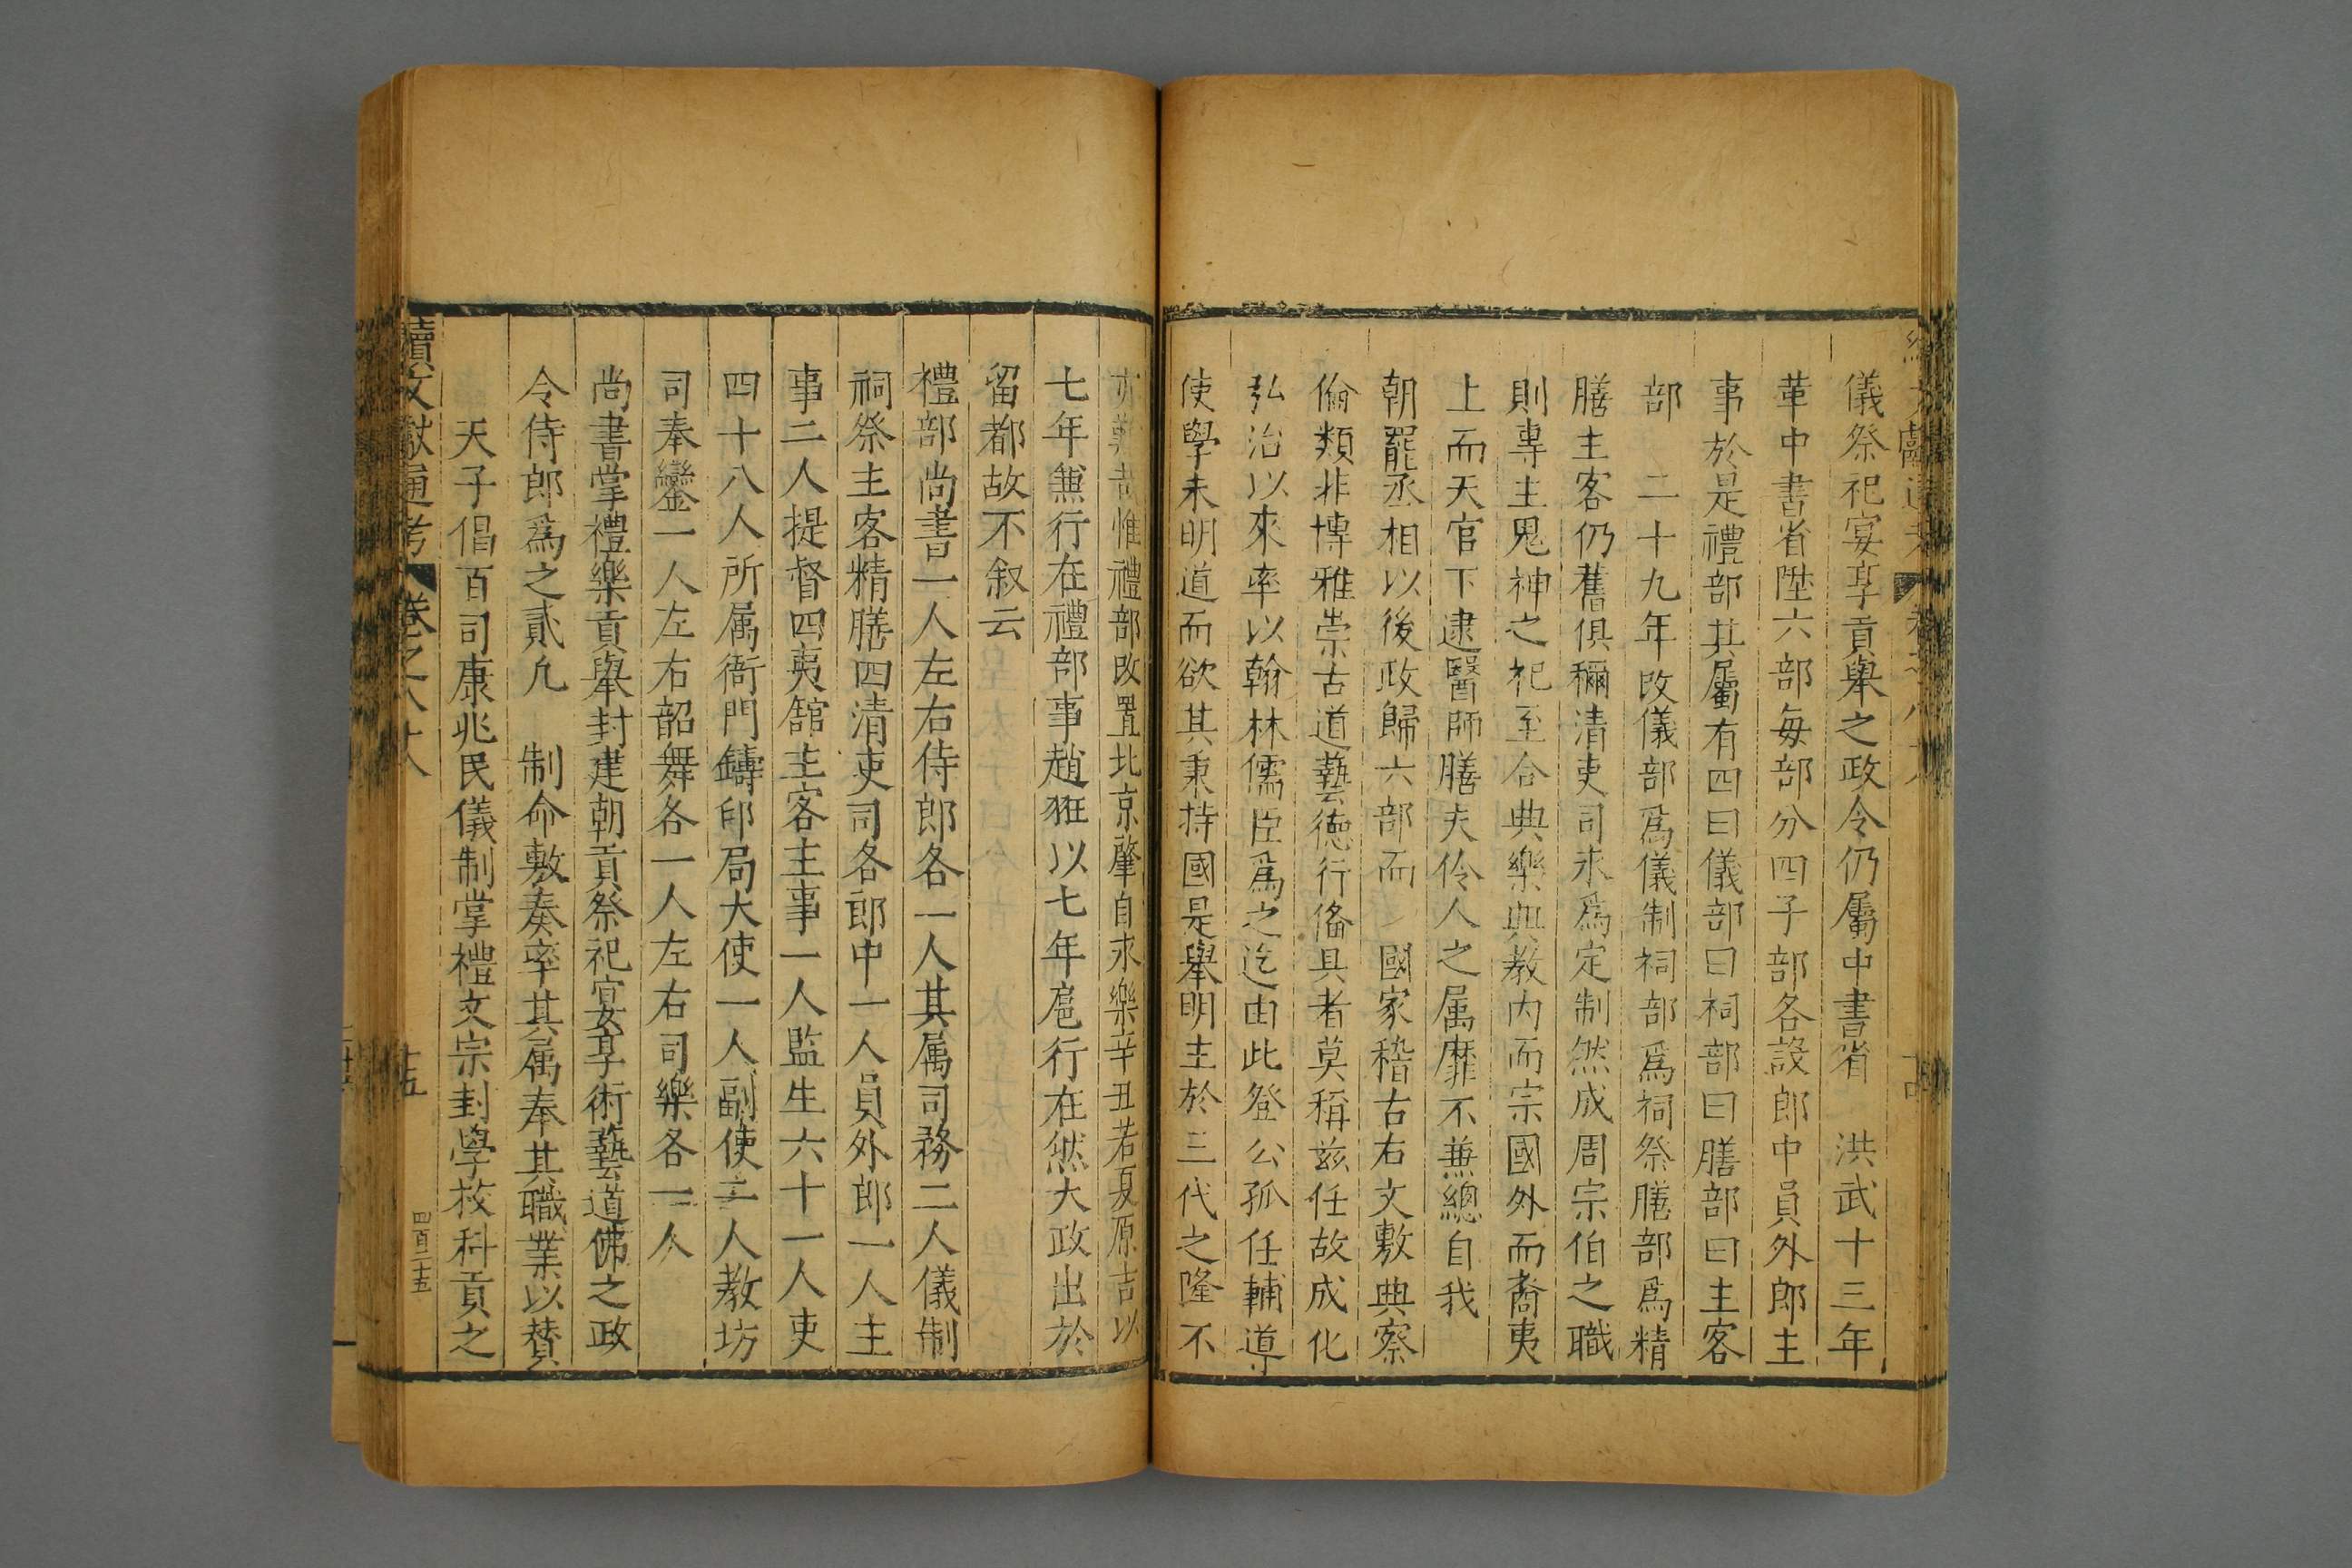 儀祭祀宴享貢舉之政令仍屬中書省　洪武十三年
革中書省陞六部每部分四子部各設郎中員外郎主
事於是禮部其屬有四曰儀部曰祠部曰膳部曰主客
部　二十九年改儀部爲儀制祠部爲祠祭膳部爲精
膳主客仍舊俱稱清吏司永爲定制然成周宗伯之職
則專主鬼神之祀至合典樂典教内而宗國外而裔夷
上而天官下逮醫師膳夫伶人之属靡不兼總自我
朝罷丞相以後政歸六部而　國家稽古右文敷典察
倫類非博雅崇古道藝德行俻具者莫稱兹任故成化
弘治以來率以翰林儒臣爲之迄由此登公孤任輔導
使學未明道而欲其秉持國是舉明主於三代之隆不
亦難哉惟禮部改置北京肇自永樂辛丑若夏原吉以
七年無行在禮部事趙羾以七年扈行在然大政出於
留都故不叙云
禮部尚書一人左右侍郎各一人其属司務二人儀制
祠祭主客精膳四清吏司各郎中一人員外郎一人主
事二人提督四夷舘主客主事一人監生六十一人吏
四十八人所属衙門鑄印局大使一人副使二人教坊
司奉鑾一人左右韶舞各一人左右司樂各一人
尚書掌禮樂貢舉封建朝貢祭祀宴享術藝道佛之政
令侍郎爲之貳凡　制命敷奏率其属奉其職業以贊
天子倡百司康兆民儀制掌禮文宗封學校科貢之
續文獻通考　卷之八十八　十五　四百二十五